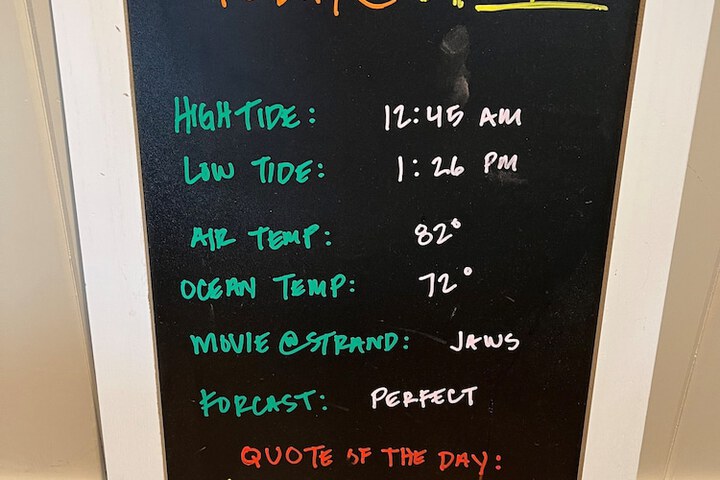 HIGH TIDE: 12:45 AM
LOW TIDE: 1:26 PM
AIR TEMP: 82°
OCEAN TEMP: 72°
MOVIE @ STRAND: JAWS
FORCAST: PERFECT
QUOTE OF THE DAY: